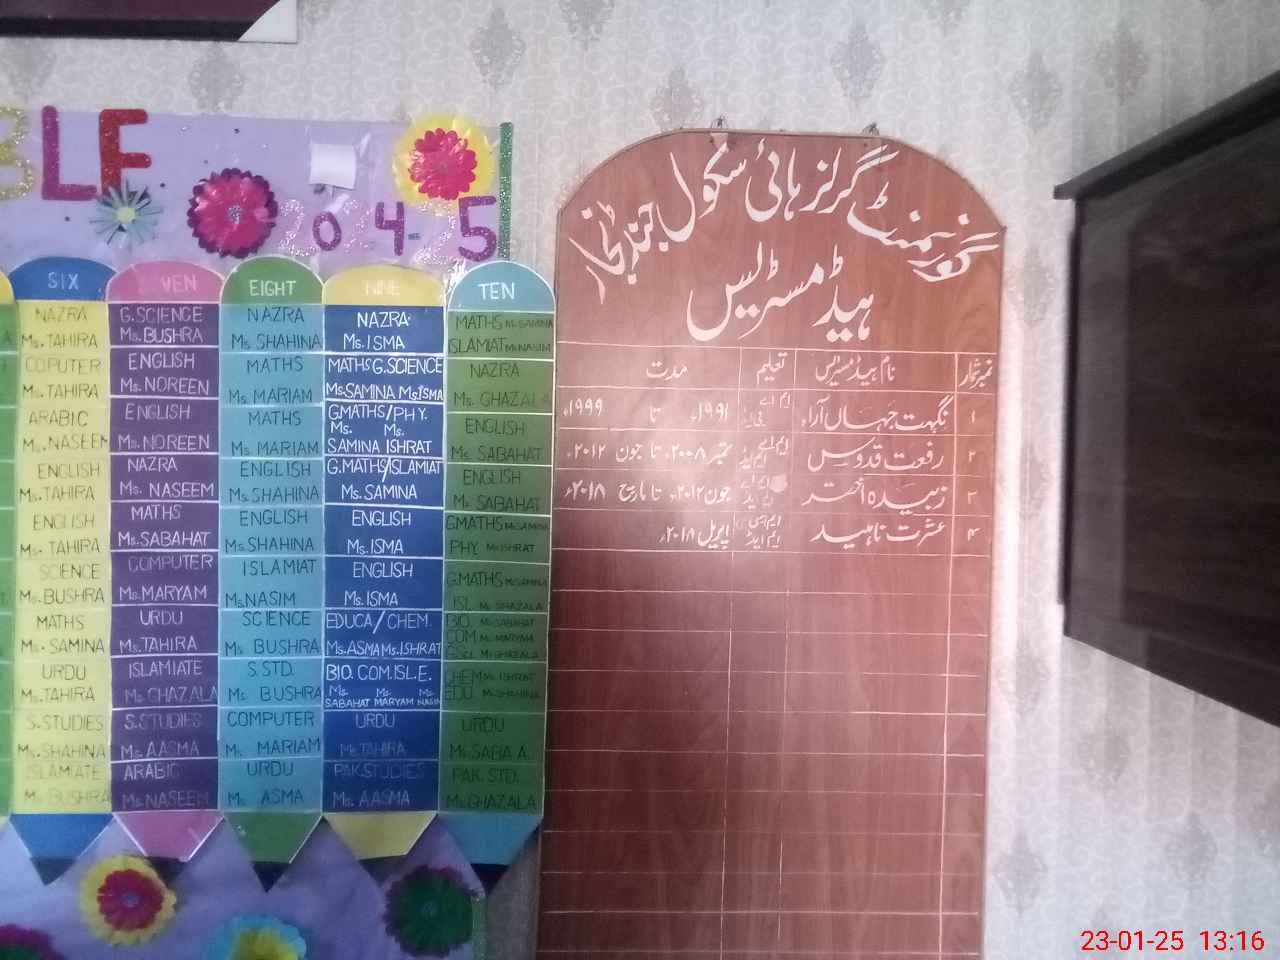 BLE
2024-25
SIX
NAZRA
Ms. TAHIRA
COPUTER
Ms. TAHIRA
ARABIC
Ms. NASEEM
ENGLISH
Ms. TAHIRA
ENGLISH
Ms. TAHIRA
SCIENCE
Ms. BUSHRA
MATHS
Ms. SAMINA
URDU
Ms. TAHIRA
S.STUDIES
Ms. SHAHINA
ISLAMIATE
Ms. BUSHRA
VEN
G.SCIENCE
Ms. BUSHRA
ENGLISH
Ms. NOREEN
ENGLISH
Ms. NOREEN
NAZRA
Ms. NASEEM
MATHS
Ms. SABAHAT
COMPUTER
Ms. MARYAM
URDU
Ms. TAHIRA
ISLAMIATE
Ms. GHAZALA
S.STUDIES
Ms. AASMA
ARABIC
Ms. NASEEM
EIGHT
NAZRA
Ms. SHAHINA
MATHS
Ms. MARIAM
MATHS
Ms. MARIAM
ENGLISH
Ms. SHAHINA
ENGLISH
Ms. SHAHINA
ISLAMIAT
Ms. NASIM
SCIENCE
Ms. BUSHRA
S.STD.
Ms. BUSHRA
COMPUTER
Ms. MARIAM
URDU
Ms. ASMA
NINE
NAZRA
Ms. ISMA
MATHS G.SCIENCE
Ms. SAMINA Ms. ISMA
G.MATHS/PHY.
Ms. Ms.
SAMINA ISHRAT
G.MATHS/ISLAMIAT
Ms. SAMINA
ENGLISH
Ms. ISMA
ENGLISH
Ms. ISMA
EDUCA/CHEM.
Ms. ASMA Ms. ISHRAT
BIO. COM. ISL.E.
Ms. Ms. Ms.
SABAHAT MARYAM NASIM
URDU
Ms. TAHIRA
PAK.STUDIES
Ms. AASMA
TEN
MATHS Ms. SAMINA
ISLAMIAT Ms. NASIM
NAZRA
Ms. GHAZALA
ENGLISH
Ms. SABAHAT
ENGLISH
Ms. SABAHAT
G.MATHS Ms. SAMINA
PHY. Ms. ISHRAT
G.MATHS Ms. SAMINA
ISL. Ms. GHAZALA
BIO. Ms. SABAHAT
COM Ms. MARYAM
G.SCI. Ms. GHAZALA
CHEM Ms. ISHRAT
EDU. Ms. SHAHINA
URDU
Ms. SABA A.
PAK. STD.
Ms. GHAZALA
گورنمنٹ گرلز ہائی سکول جنڈنجار
ہیڈ مسٹریس
نمبر شمار نام ہیڈ مسٹریس تعلیم مدت
۱ نگہت جہاں آراء ایم اے بی ایڈ ۱۹۹۱ء تا ۱۹۹۹ء
۲ رفعت قدوس ایم اے ایم ایڈ ستمبر ۲۰۰۸ء تا جون ۲۰۱۲ء
۳ زبیدہ اختر جون ۲۰۱۲ء تا مارچ ۲۰۱۸ء
۴ عشرت ناہید ایم ایس سی ایم ایڈ اپریل ۲۰۱۸ء
23-01-25 13:16